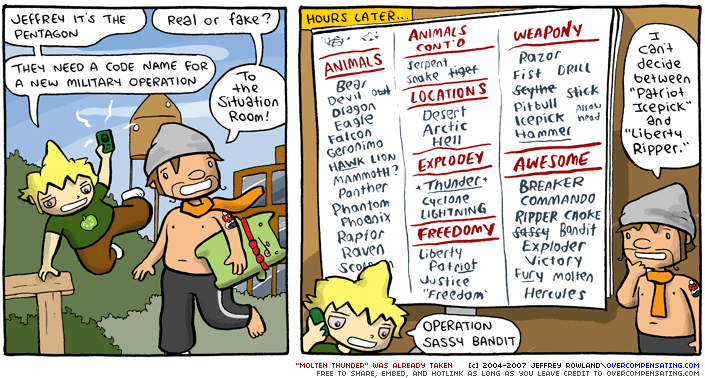 JEFFREY IT'S THE
PENTAGON
Real or fake?
THEY NEED A CODE NAME FOR
A NEW MILITARY OPERATION
To
the
Situation
Room!
HOURS LATER...
ANIMALS
Bear
Devil owl
Dragon
Eagle
Falcon
Geronimo
HAWK LION
MAMMOTH?
Panther
Phantom
Phoenix
Raptor
Raven
ANIMALS
CONT'D
Serpent
Snake tiger
LOCATIONS
Desert
Arctic
Hell
EXPLODEY
*Thunder*
Cyclone
LIGHTNING
FREEDOMY
Liberty
Patriot
Justice
"Freedom"
WEAPONY
Razor
Fist DRILL
Scythe Stick
Pitbull Arrow
Icepick head
Hammer
AWESOME
BREAKER
COMMANDO
RIPPER CHOKE
Sassy Bandit
Exploder
Victory
Fury molten
Hercules
I
can't
decide
between
"Patriot
Icepick"
and
"Liberty
Ripper."
OPERATION
SASSY BANDIT
"MOLTEN THUNDER" WAS ALREADY TAKEN (c) 2004-2007 JEFFREY ROWLAND\OVERCOMPENSATING.COM
FREE TO SHARE, EMBED, AND HOTLINK AS LONG AS YOU LEAVE CREDIT TO OVERCOMPENSATING.COM